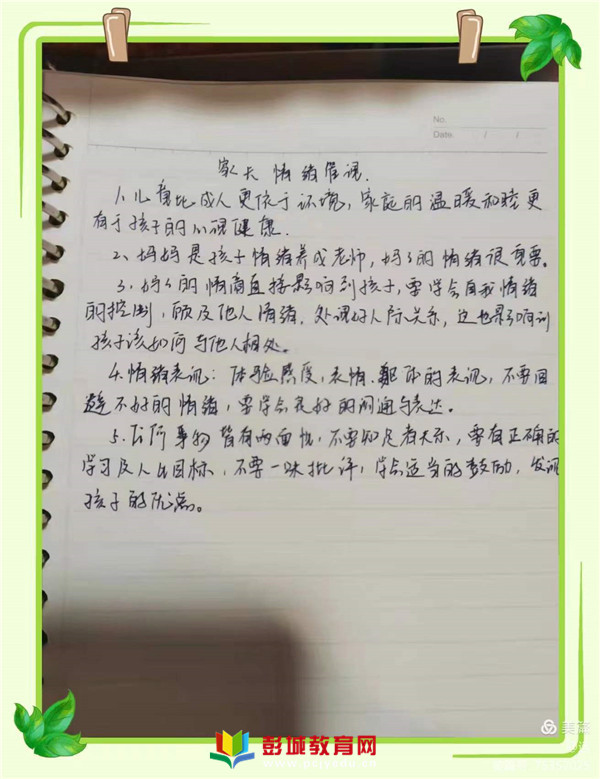 No.
Date / /
家长情绪管理.
1. 儿童比成人更依于环境, 家庭的温暖和睦更
有于孩子的心理健康.
2、妈妈是孩子情绪养成老师, 妈妈的情绪很重要。
3. 妈妈的情商直接影响到孩子, 要学会自我情绪
的控制, 顾及他人情绪. 处理好人际关系, 这也影响到
孩子该如何与他人相处。
4. 情绪表现: 体验感度, 表情. 的表现, 不要回
避不好的情绪, 要学会良好的沟通与表达。
5. 任何事物皆有两面性, 不要知足者天乐, 要有正确的
学习及人生目标, 不要一味批评, 学会适当的鼓励, 发现
孩子的优点。
美篇
彭城教育网